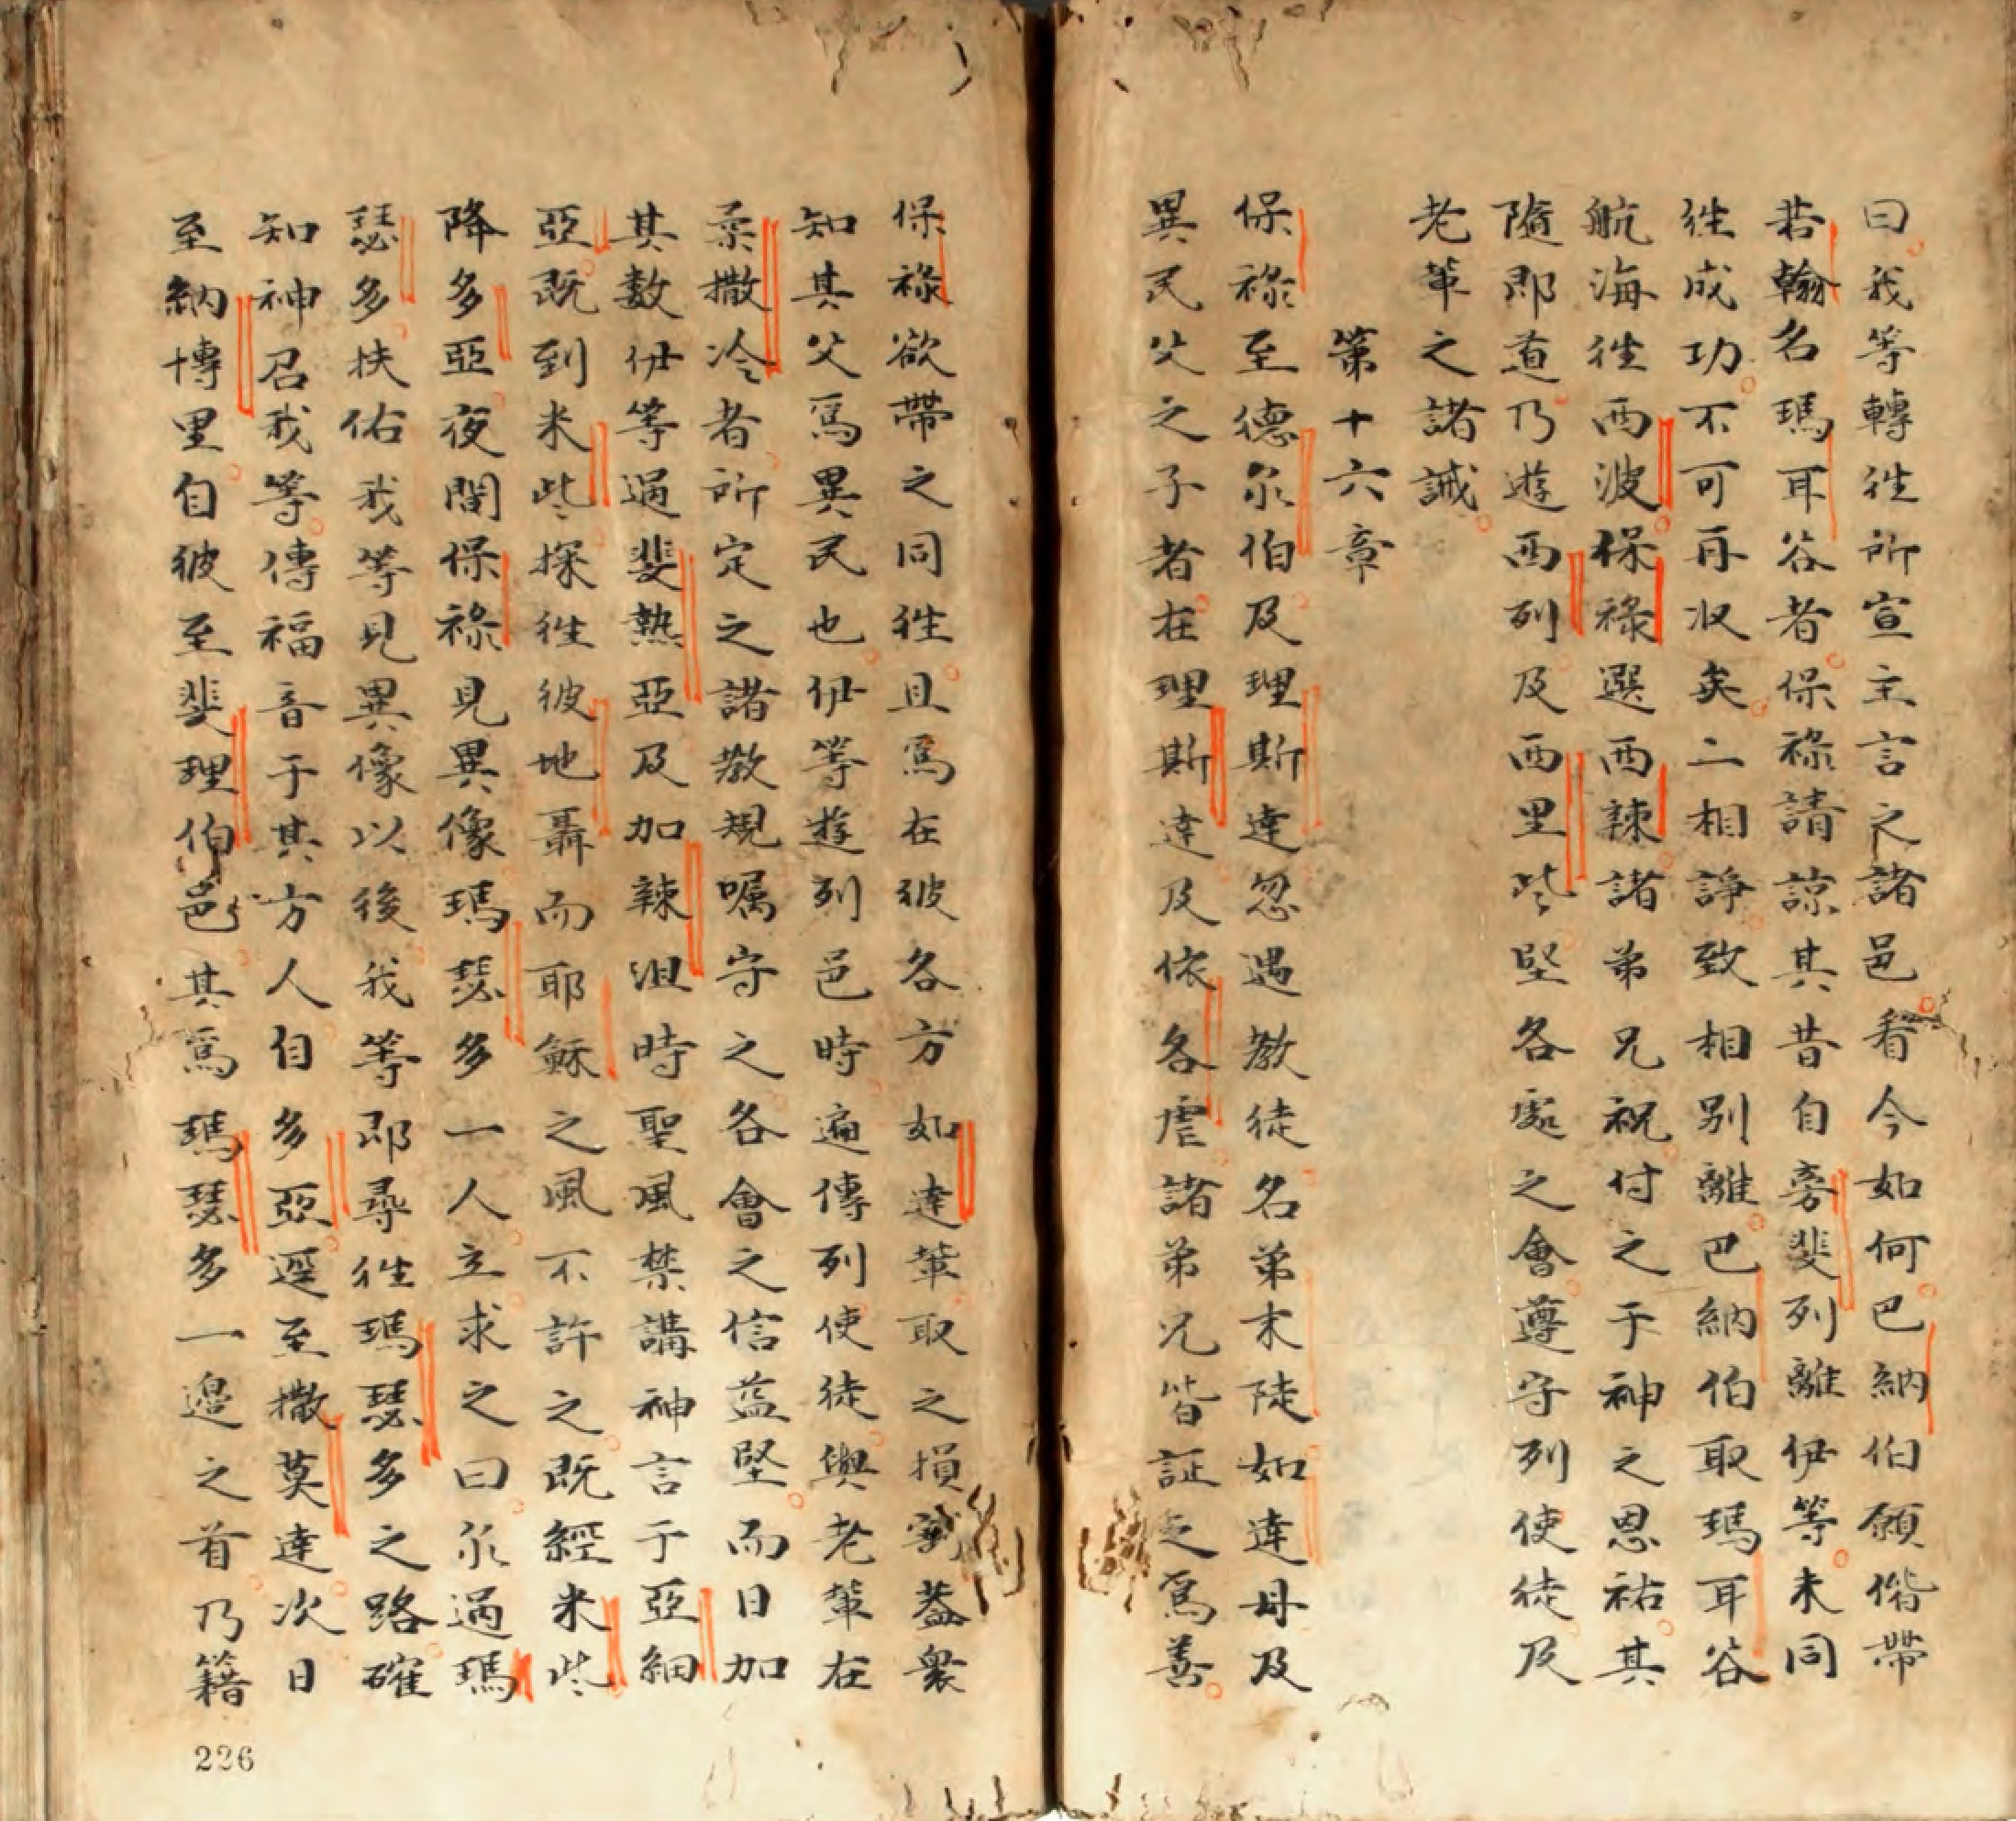 曰我等轉徃所宣主言之諸邑看今如何巴納伯願偕帶
若翰名瑪耳谷者保祿請諒其昔自旁斐列離伊等未同
徃成功不可再収矣二相諍致相别離巴納伯取瑪耳谷
航海徃西波保祿選西辣諸弟兄祝付之于神之恩祐其
隨即道乃遊西列及西里些堅各處之會遵守列使徒及
老軰之諸誡
第十六章
保祿至德尔伯及理斯達忽遇教徒名弟末陡如達母及
異民父之子者在理斯達及依各虐諸弟兄皆証之爲善
保祿欲帶之同徃且爲在彼各方如達軰取之損割葢衆
知其父爲異民也伊等遊列邑時遍傳列使徒與老軰在
柔撒冷者所定之諸教規嘱守之各會之信益堅而日加
其數伊等過斐熱亞及加辣沮時聖風禁講神言于亞細
亞既到米些探徃彼地聶而耶穌之風不許之既經米些
降多亞夜間保祿見異像瑪瑟多一人立求之曰尔過瑪
瑟多扶佑我等見異像以後我等即尋徃瑪瑟多之路確
知神召我等傳福音于其方人自多亞逕至撒莫達次日
至納博里自彼至斐理伯邑其爲瑪瑟多一邉之首乃籍
226